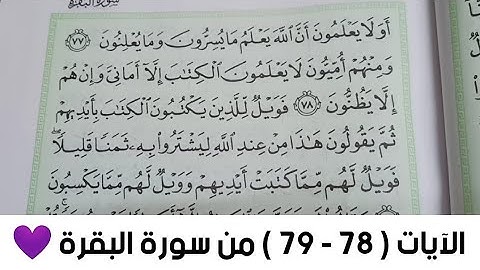 سورة البقرة
أَوَلَا يَعْلَمُونَ أَنَّ ٱللَّهَ يَعْلَمُ مَا يُسِرُّونَ وَمَا يُعْلِنُونَ ﴿٧٧﴾
وَمِنْهُمْ أُمِّيُّونَ لَا يَعْلَمُونَ ٱلْكِتَٰبَ إِلَّآ أَمَانِيَّ وَإِنْ هُمْ
إِلَّا يَظُنُّونَ ﴿٧٨﴾ فَوَيْلٌ لِّلَّذِينَ يَكْتُبُونَ ٱلْكِتَٰبَ بِأَيْدِيهِمْ
ثُمَّ يَقُولُونَ هَٰذَا مِنْ عِندِ ٱللَّهِ لِيَشْتَرُوا۟ بِهِۦ ثَمَنًا قَلِيلًا ۖ
فَوَيْلٌ لَّهُم مِّمَّا كَتَبَتْ أَيْدِيهِمْ وَوَيْلٌ لَّهُم مِّمَّا يَكْسِبُونَ
الآيات ( 78 - 79 ) من سورة البقرة 💜